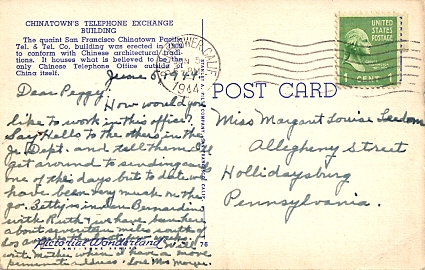 CHINATOWN'S TELEPHONE EXCHANGE
BUILDING
The quaint San Francisco Chinatown Pacific
Tel. & Tel. Co. building was erected in
to conform with Chinese architectural tradi-
tions. It houses what is believed to be the
only Chinese Telephone Office outside of
China itself.
CALIF.
JUN
1944
UNITED STATES
POSTAGE
1 CENT 1
POST CARD
June
Dear Peggy:
How would you
like to work in this office?
Say Hello to the others in the
Jr. Dept. and tell them I'll
get around to sending cards
one of these days but to date we
have been very much on the
go. Betty is in San Bernardino
with Ruth & we have been here
about seventy miles south of
with Mother when I have a more
permanent address. Love Miss
Miss Margaret Louise
Allegheny Street
Hollidaysburg
Pennsylvania.
Pictorial Wonderland
76